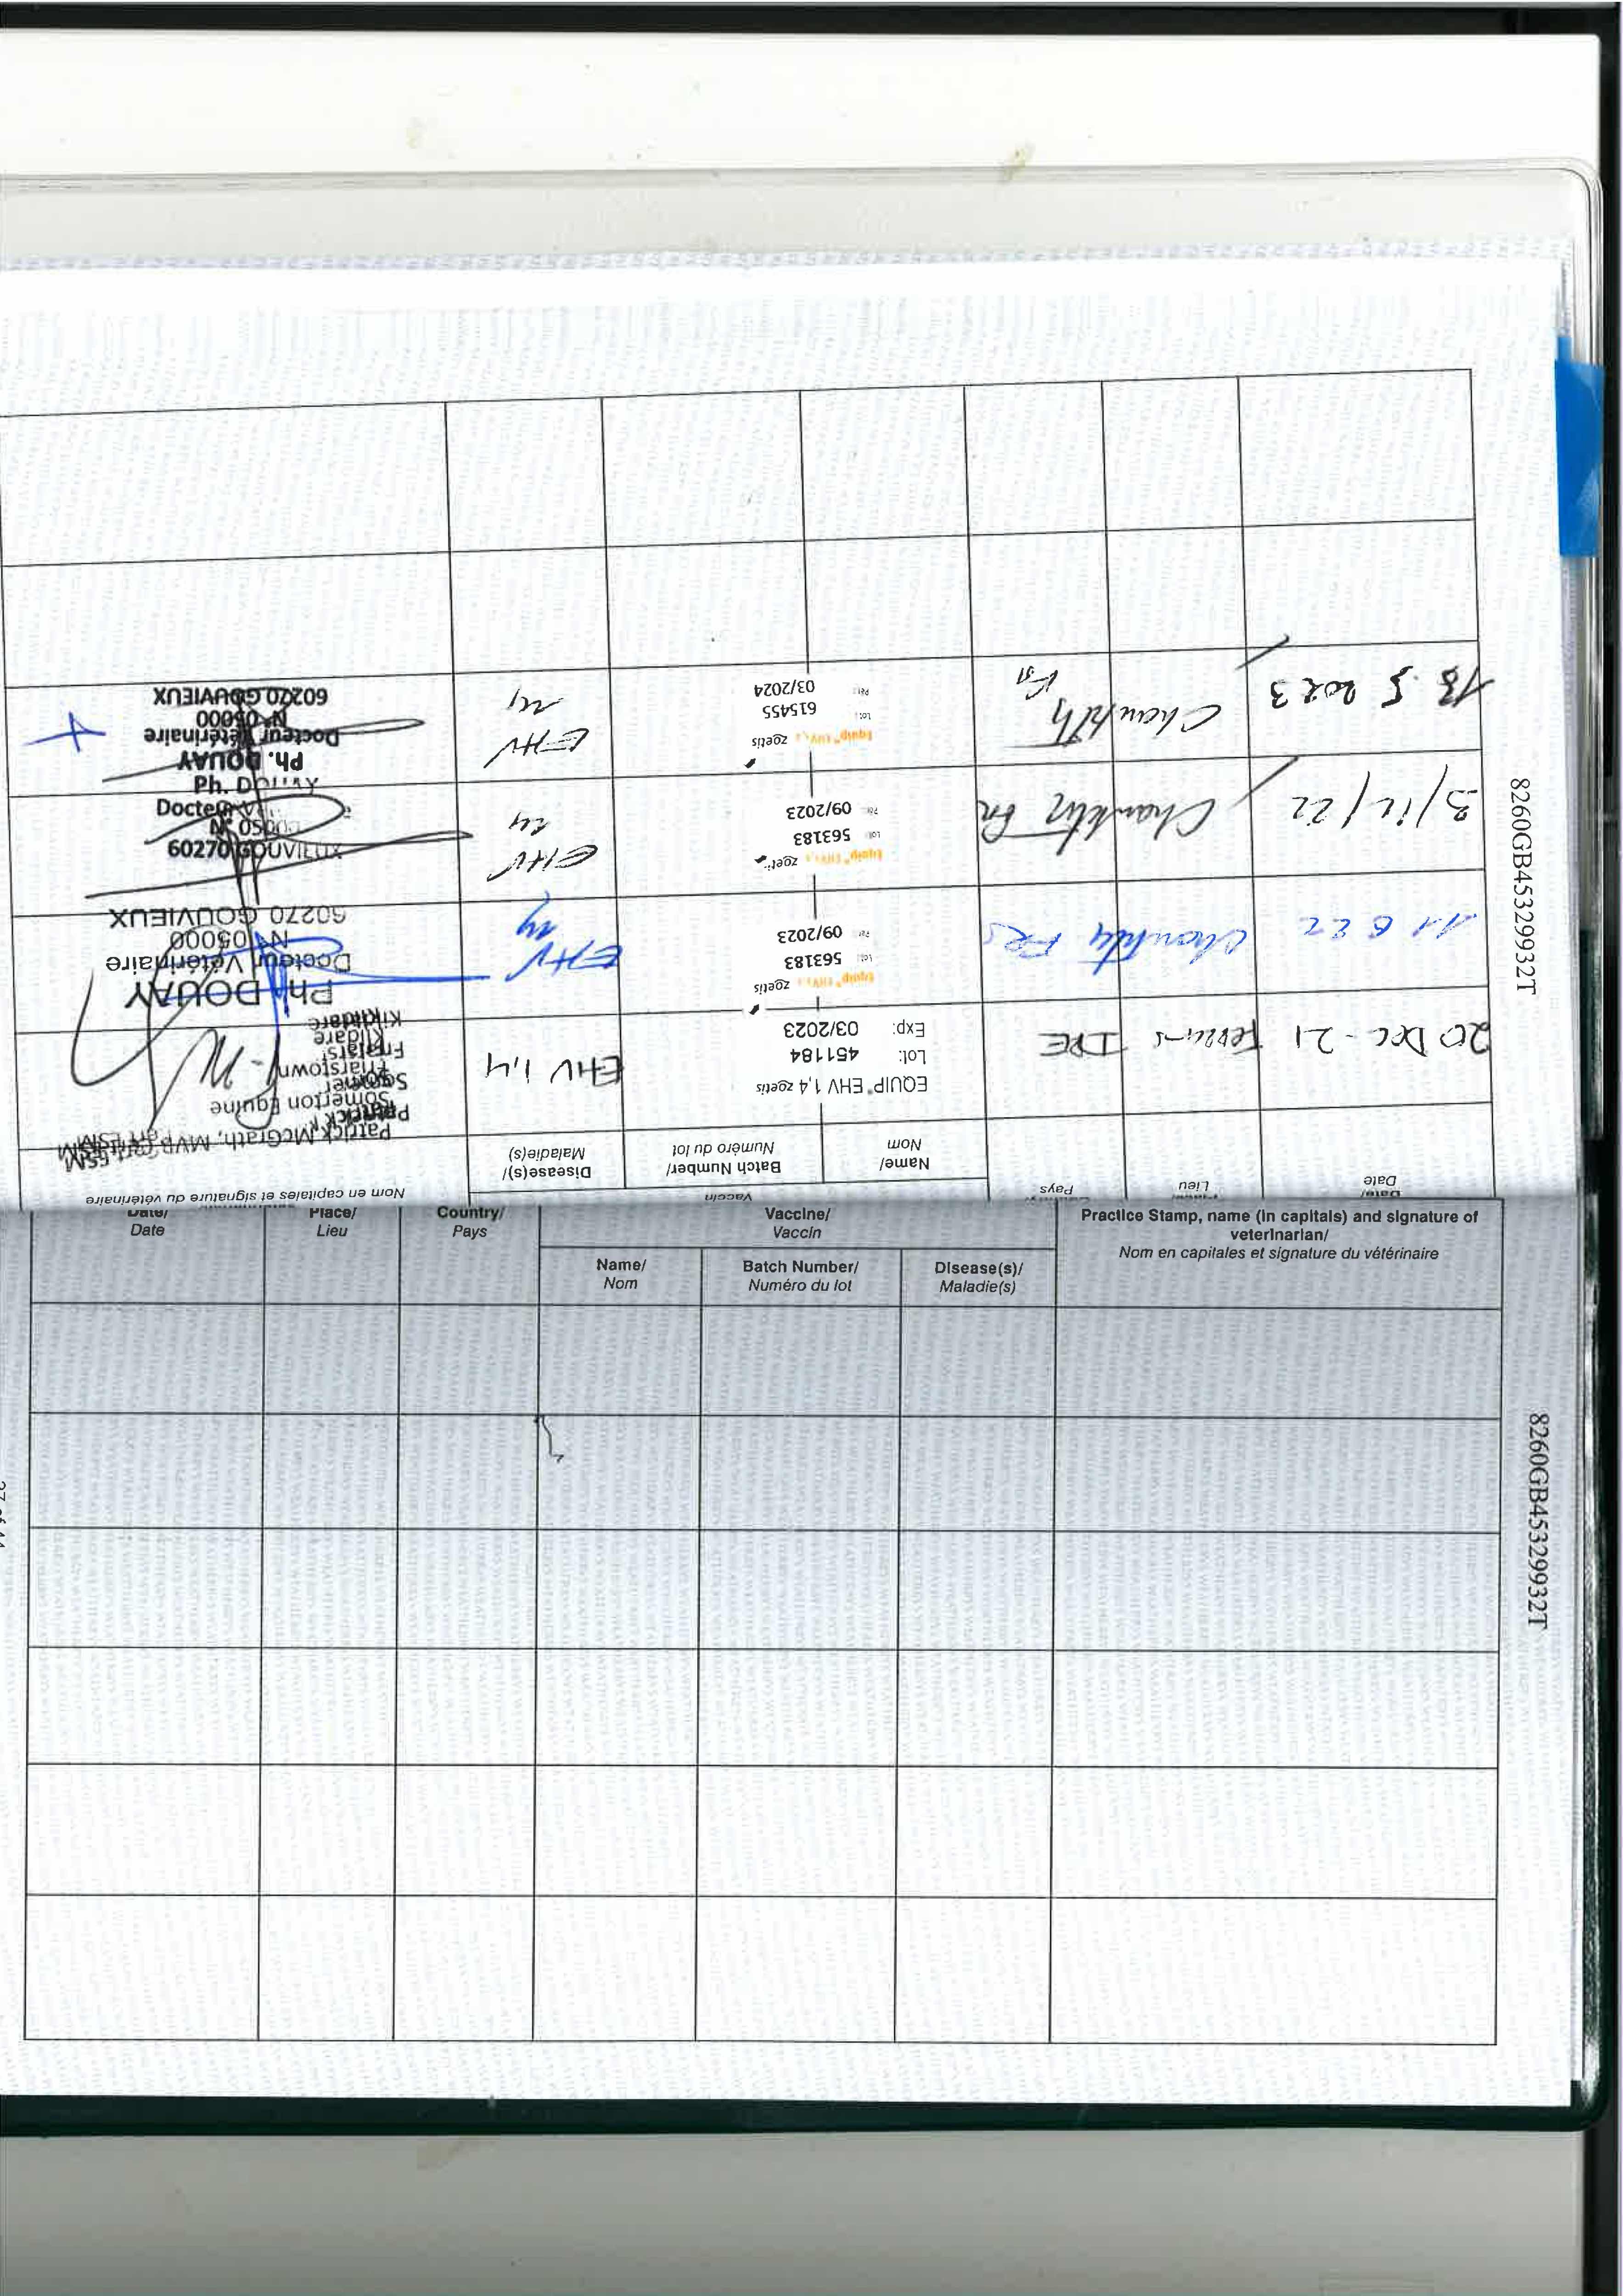 Date/
Date
Place/
Lieu
Country/
Pays
Vaccine/
Vaccin
Practice Stamp, name (in capitals) and signature of
veterinarian/
Nom en capitales et signature du vétérinaire
Name/
Nom
Batch Number/
Numéro du lot
Disease(s)/
Maladie(s)
8260GB45329932T
Date/
Date
Lieu
Pays
Vaccin
Nom en capitales et signature du vétérinaire
Name/
Nom
Batch Number/
Numéro du lot
Disease(s)/
Maladie(s)
20 Dec-21
IRE
EQUIP® EHV 1,4 zoetis
Lot: 451184
Exp: 03/2023
EHV 1,4
Patrick McGrath, MVB Cert ESM
Somerton Equine
Friarstown
Kildare
11 6 22
Chantilly FRS
Equip® EHV 1,4 zoetis
Lot: 563183
Pér.: 09/2023
EHV
1/4
Ph. DOUAY
Docteur Vétérinaire
N° 05000
60270 GOUVIEUX
3/12/22
Chantilly
Equip® EHV 1,4 zoetis
Lot: 563183
Pér.: 09/2023
EHV
1/4
Ph. DOUAY
Docteur V
N° 05000
60270 GOUVIEUX
13 5 2023
Chantilly
Equip® EHV 1,4 zoetis
Lot: 615455
Pér.: 03/2024
EHV
1/4
Ph. DOUAY
Docteur Vétérinaire
N° 05000
60270 GOUVIEUX
8260GB45329932T